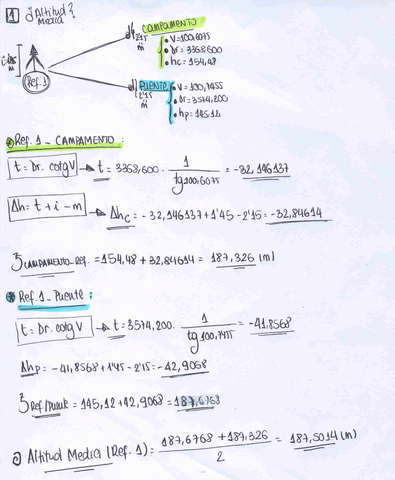 1 ¿Altitud Media?
CAMPAMENTO
• V=100,6075
• Dr=3368,600
• hc=154,48
2'15 m
Ref.1
PUENTE
2'15 m
• V=100,7455
• Dr=3574,200
• hp=145,12
Ref. 1_CAMPAMENTO :
t = Dr. cotgV → t = 3368,600 · 1 / tg100,6075 = -32,146137
Δh = t + i - m → Δhc = -32,146137+1'45-2'15=-32,84614
Z CAMPAMENTO_Ref. =154,48 + 32,84614 = 187,326 (m)
Ref.1_Puente :
t = Dr. cotgV → t = 3574,200 · 1 / tg100,7455 = -41,8568
Δhp = -41,8568+1'45-2'15=-42,9068
Z Ref1Puente = 145,12+42,9068=187,6768
Altitud Media (Ref. 1) = 187,6768 + 187,326 / 2 = 187,5014 (m)